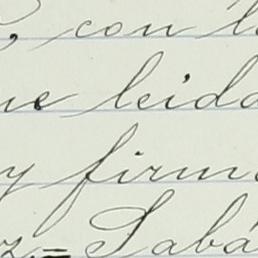 , con l
ue leida
y firm
z= Sabá